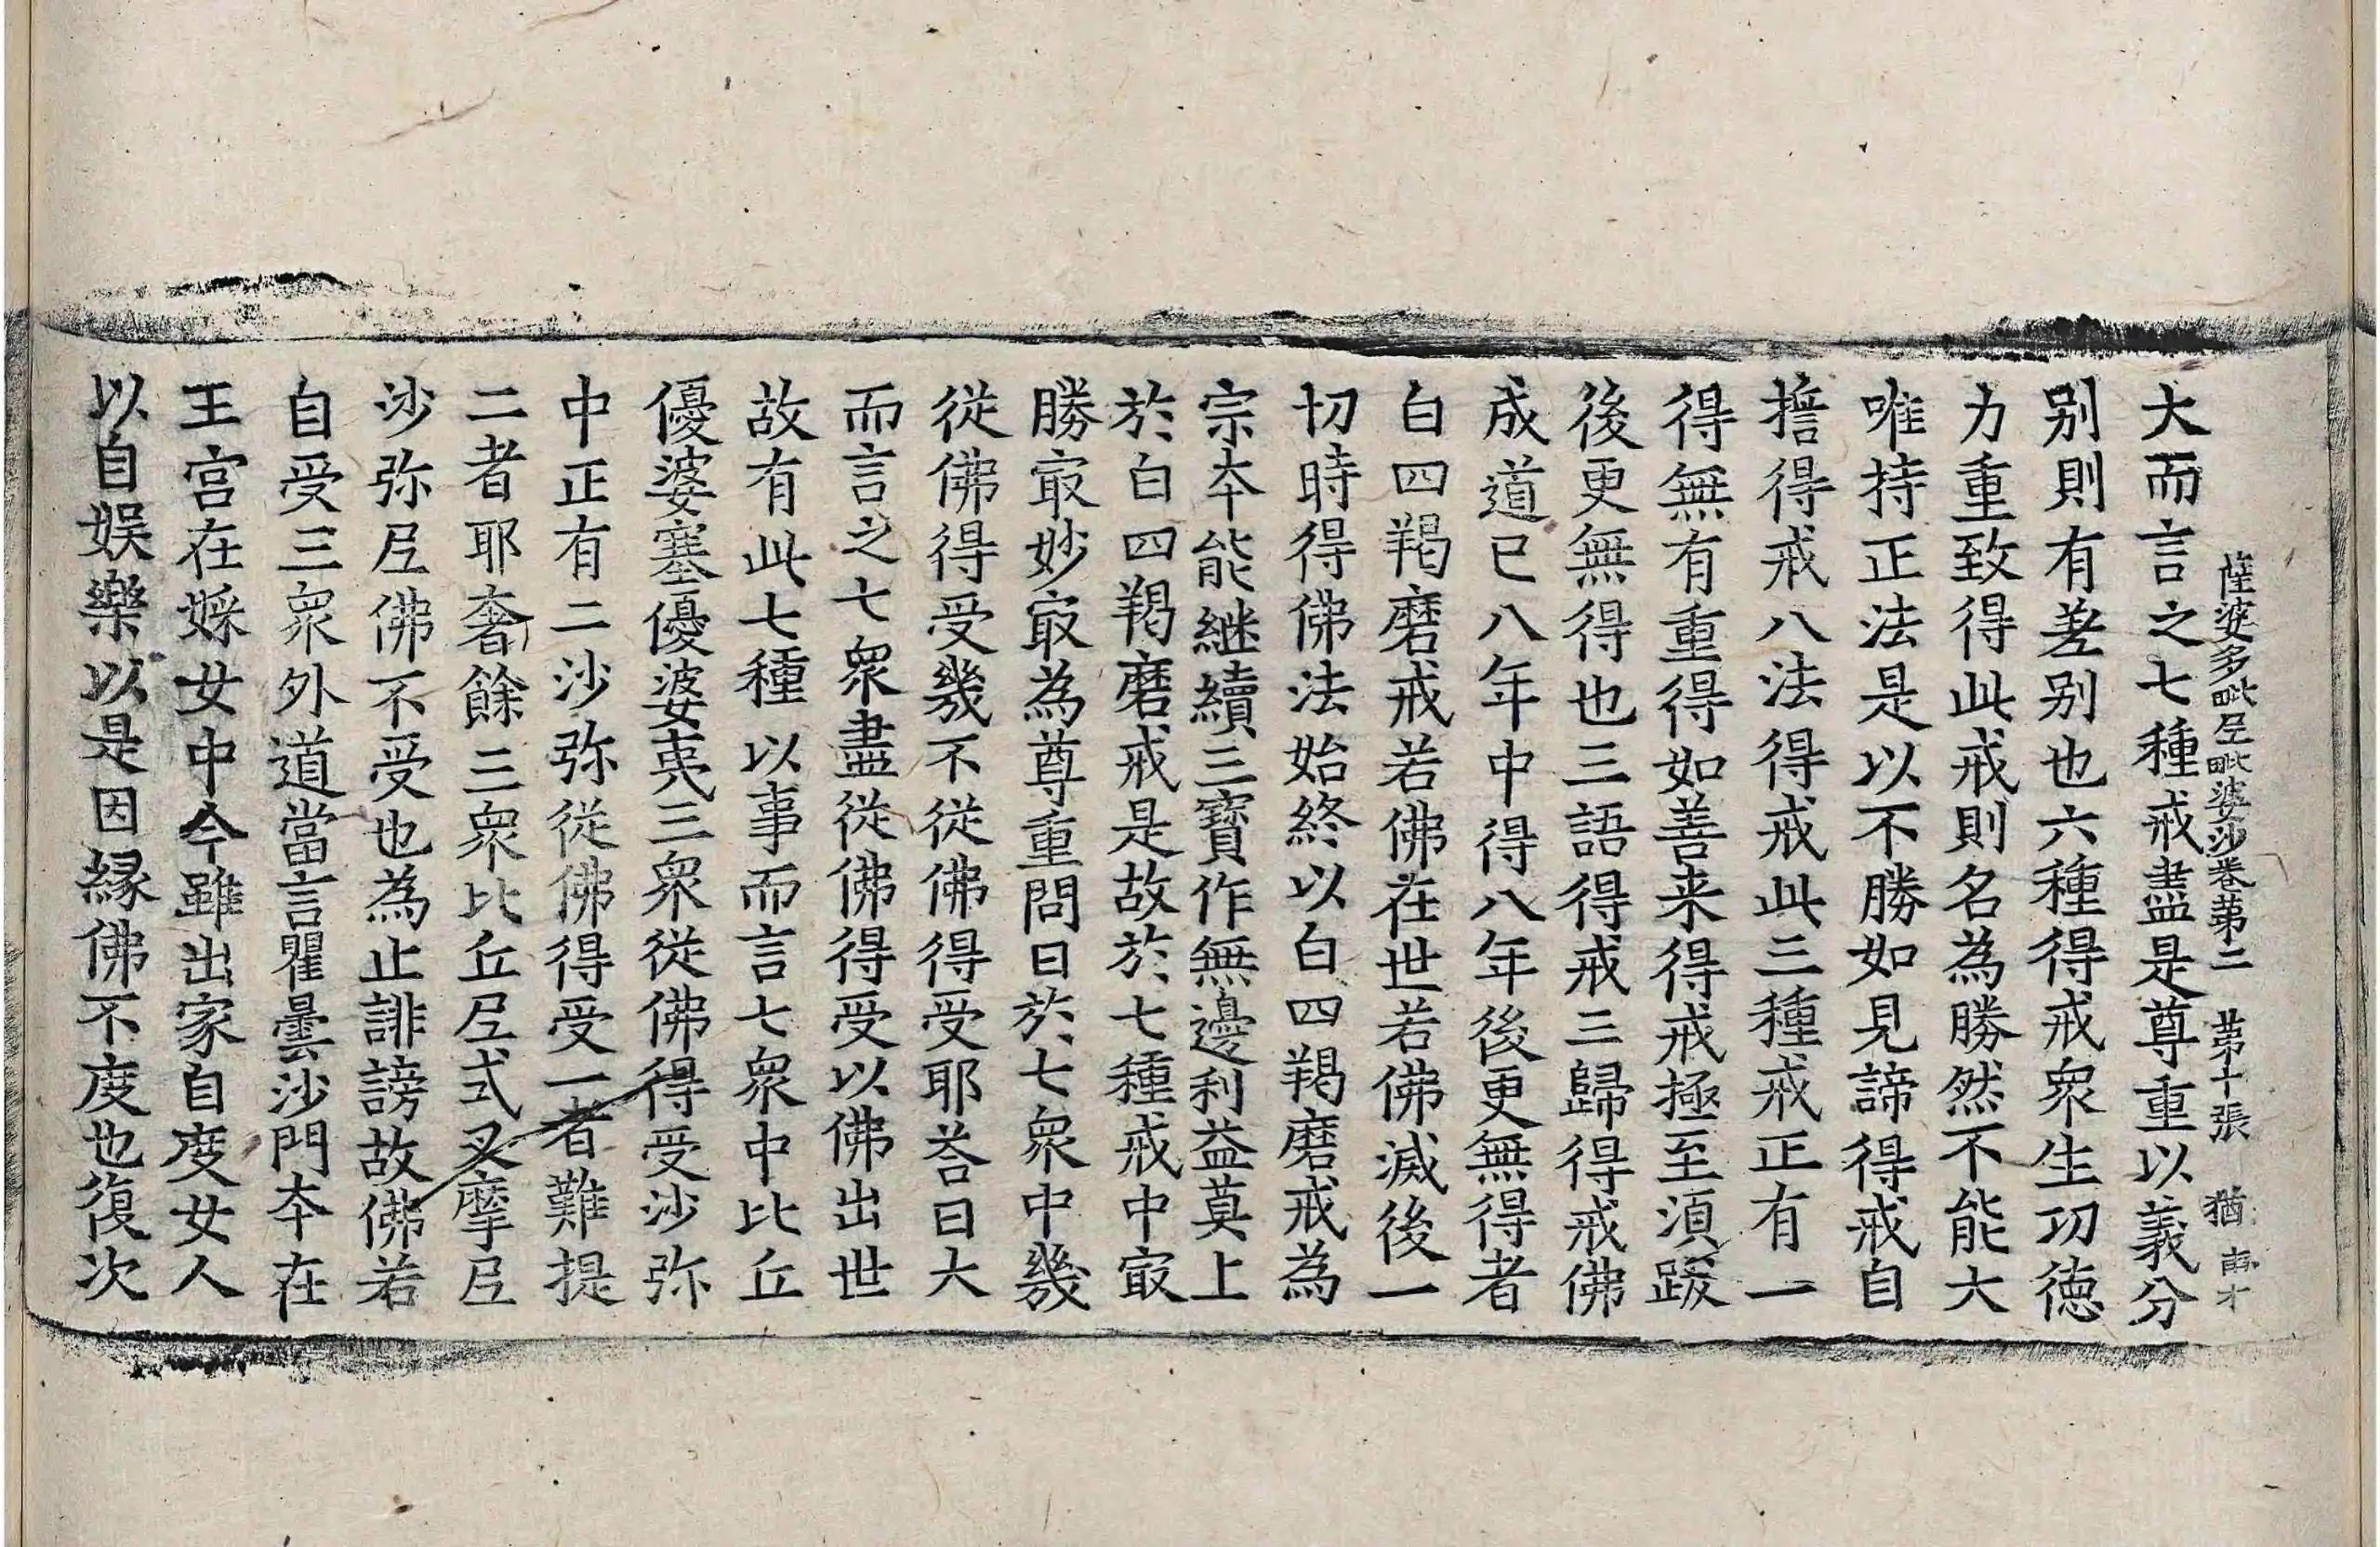 薩婆多毗𡰱毗婆沙卷苐二　苐十張　猶
大而言之七種戒盡是尊重以義分
别則有差别也六種得戒衆生功德
力重致得此戒則名為勝然不能大
唯持正法是以不勝如見諦得戒自
擔得戒八法得戒此三種戒正有一
得無有重得如善来得戒極至湏跋
後更無得也三語得戒三歸得戒佛
成道已八年中得八年後更無得者
白四羯磨戒若佛在世若佛滅後一
切時得佛法始終以白四羯磨戒為
宗夲能継續三寶作無邊利益莫上
於白四羯磨戒是故於七種戒中㝡
勝㝡妙㝡為尊重問曰於七衆中幾
従佛得受幾不従佛得受耶荅曰大
而言之七衆盡従佛得受以佛出世
故有此七種以事而言七衆中比丘
優婆塞優婆夷三衆従佛得受沙弥
中正有二沙弥従佛得受一者難提
二者耶奢餘三衆比丘𡰱式叉摩𡰱
沙弥𡰱佛不受也為止誹謗故佛若
自受三衆外道當言瞿曇沙門夲在
王宮在婇女中今雖出家自度女人
以自娱樂以是因縁佛不度也復次